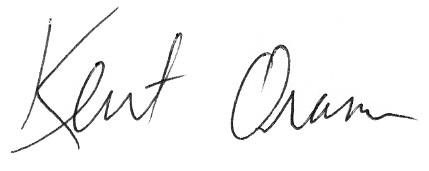 Kent Oram